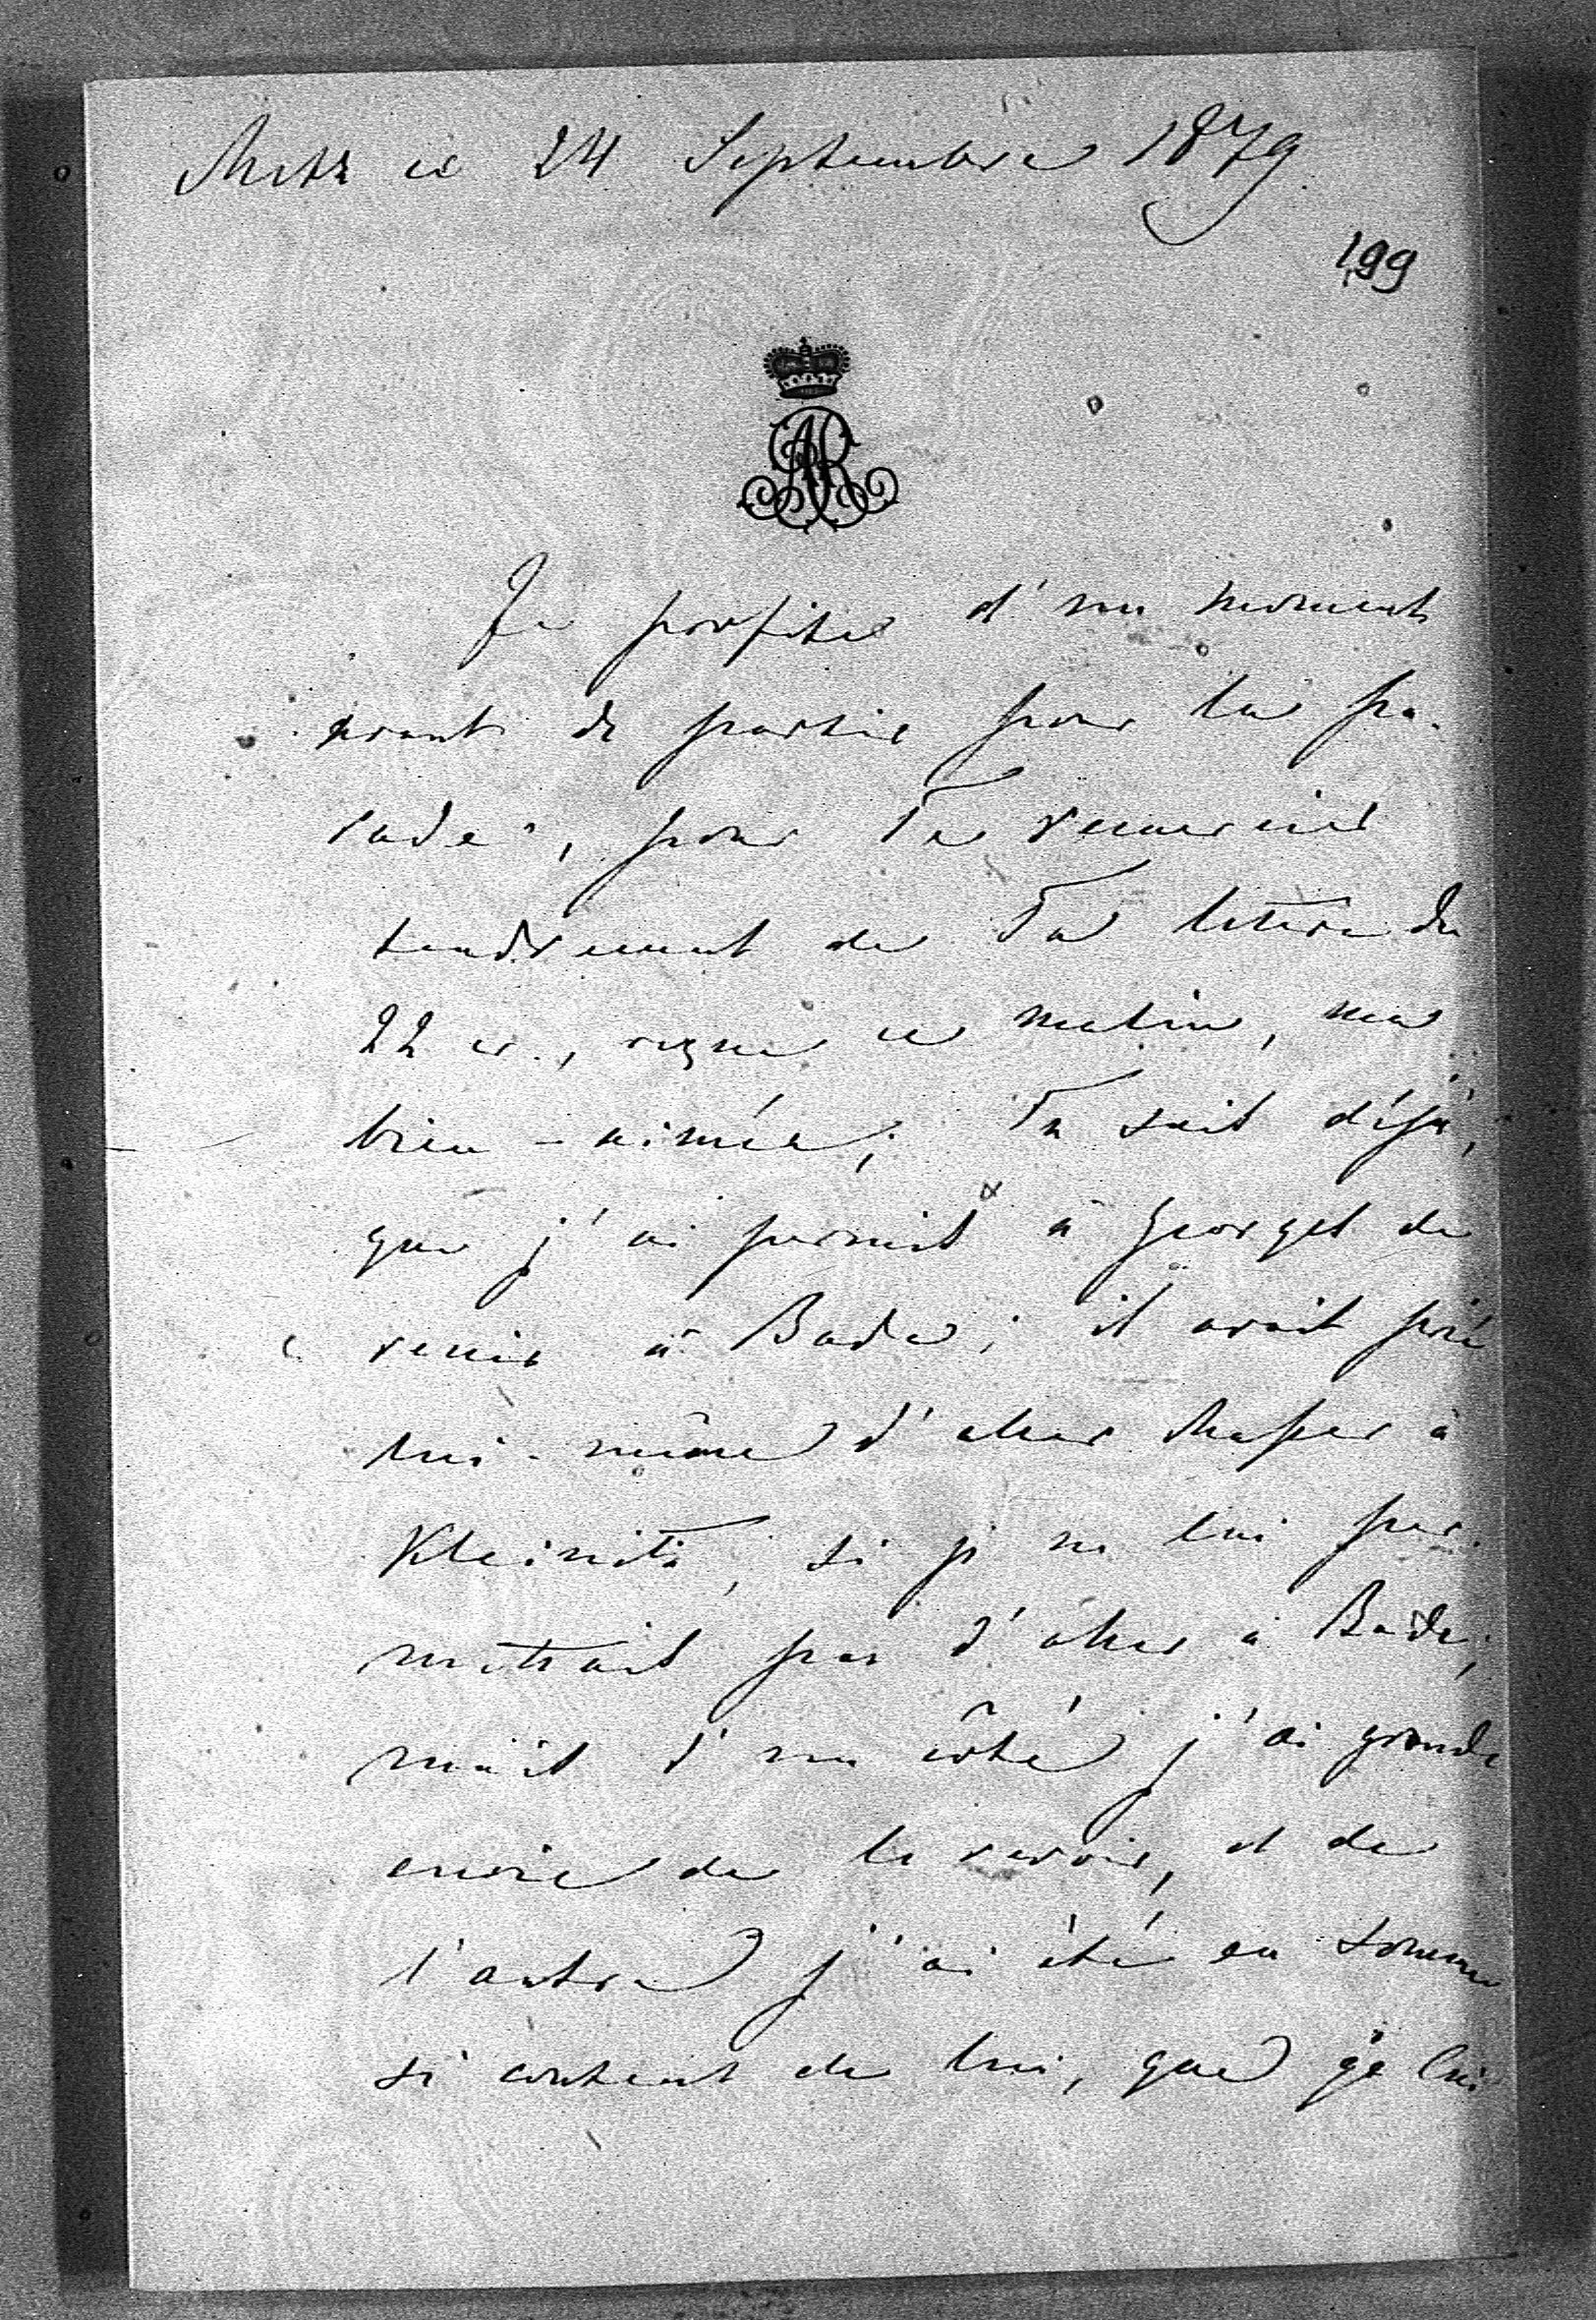 Metz ce 24 Septembre 1879
199
AR
Je profite d'un moment
avant de partir pour la pa-
rade, pour Te remercier
tendrement de Ta lettre du
22 cr., reçue ce matin, ma
bien-aimée; Tu sait déjà,
que j'ai permit à Georges de
venir à Bade; il avait prié
lui-même d'aller chasser à
si je ne lui per-
mettrait pas d'aller à Bade;
mais d'un côté j'ai grande
envie de le revoir, et de
l'autre j'ai été en somme
si content de lui, que je lui